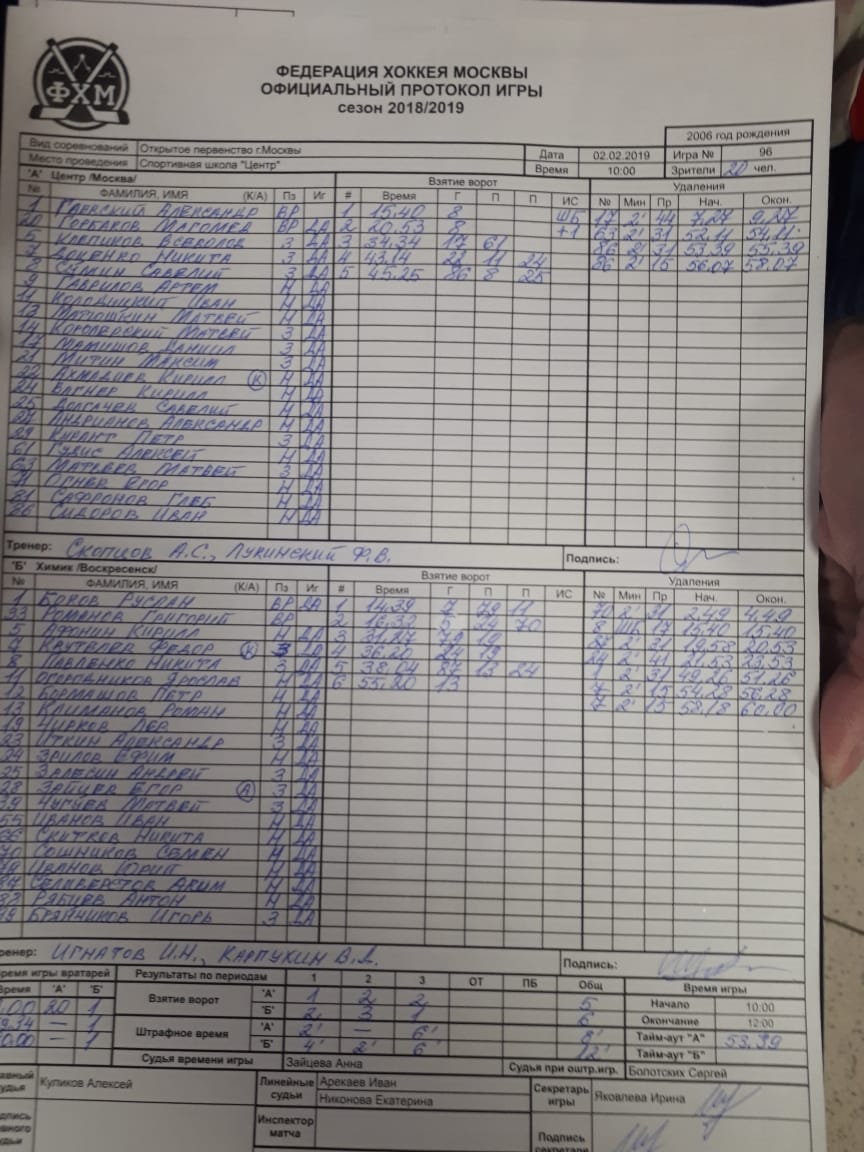 ФХМ
ФЕДЕРАЦИЯ ХОККЕЯ МОСКВЫ
ОФИЦИАЛЬНЫЙ ПРОТОКОЛ ИГРЫ
сезон 2018/2019
2006 год рождения
Вид соревнований Открытое первенство г.Москвы Дата 02.02.2019 Игра № 96
Место проведения Спортивная школа "Центр" Время 10:00 Зрители 20 чел.
"А" Центр /Москва/ Взятие ворот Удаления
№ ФАМИЛИЯ, ИМЯ (К/А) Пз Иг # Время Г П П ИС № Мин Пр Нач. Окон.
1 Гаевский Александр ВР 1 15.40 8 ШБ 17 2' 44 7.27 9.27
20 Горбаков Магомед ВР ДА 2 20.53 8 +1 63 2' 31 52.11 54.11
5 Клепиков Всеволод З ДА 3 34.34 17 61 86 2' 31 53.39 55.39
7 Доценко Никита З ДА 4 43.14 22 11 24 86 2' 15 56.07 58.07
8 Силкин Савелий З ДА 5 45.25 86 8 25
9 Гаврилов Артем Н ДА
11 Колодницкий Иван Н ДА
13 Матюшкин Матвей Н ДА
14 Королевский Матвей З ДА
17 Мамишов Даниил З ДА
21 Митин Максим З ДА
22 Ахмадиев Кирилл (К) Н ДА
24 Вагнер Кирилл Н ДА
25 Долгачев Савелий Н ДА
Андрианов Александр Н ДА
29 Курант Петр З ДА
61 Гудис Алексей Н ДА
63 Матвеев Матвей З ДА
71 Огнев Егор Н ДА
81 Сафронов Глеб Н ДА
86 Сидоров Иван Н ДА
Тренер: Скопцов А.С., Лукинский Ф.В. Подпись:
"Б" Химик /Воскресенск/ Взятие ворот Удаления
№ ФАМИЛИЯ, ИМЯ (К/А) Пз Иг # Время Г П П ИС № Мин Пр Нач. Окон.
1 Боков Руслан ВР ДА 1 14.39 7 79 11 70 2' 31 2.49 4.49
33 Романов Григорий ВР 2 16.32 5 24 70 8 ШБ 17 15.40 15.40
5 Афонин Кирилл Н ДА 3 31.27 79 19 2' 31 19.58 20.53
Круталев Федор (К) З ДА 4 36.20 24 19 24 2' 41 21.53 23.53
8 Павленко Никита З ДА 5 38.04 87 13 24 1 2' 31 49.26 51.26
11 Огородников Ярослав Н ДА 6 55.20 13 7 2' 15 54.28 56.28
12 Бормашов Петр Н ДА 7 2' 15 58.18 60.00
13 Климанов Роман Н ДА
19 Чирков Лев Н ДА
23 Уткин Александр З ДА
24 Зрилов Ефим Н ДА
25 Залесин Андрей З ДА
28 Зайцев Егор (А) З ДА
39 Чугуев Матвей З ДА
55 Иванов Иван Н ДА
66 Скитков Никита Н ДА
70 Сошников Семен Н ДА
79 Иванов Юрий Н ДА
Селиверстов Аким Н ДА
Рябцев Антон Н ДА
Брянчиков Игорь З ДА
ренер: Игнатов И.Н., Карпухин В.А. Подпись:
ремя игры вратарей Результаты по периодам 1 2 3 ОТ ПБ Общ Время игры
ремя "А" "Б" Взятие ворот "А" 1 2 2 5 Начало 10:00
.00 20 1 "Б" 2 3 1 6 Окончание 12:00
9.14 — 1 Штрафное время "А" 2' — 6' 8' Тайм-аут "А" 53.39
0.00 — 1 "Б" 4' 2' 6' 12' Тайм-аут "Б"
Судья времени игры Зайцева Анна Судья при оштр.игр. Болотских Сергей
авный удья Куликов Алексей Линейные судьи Арекаев Иван Секретарь игры Яковлева Ирина
Никонова Екатерина
дпись вного дьи Инспектор матча Подпись секретаря